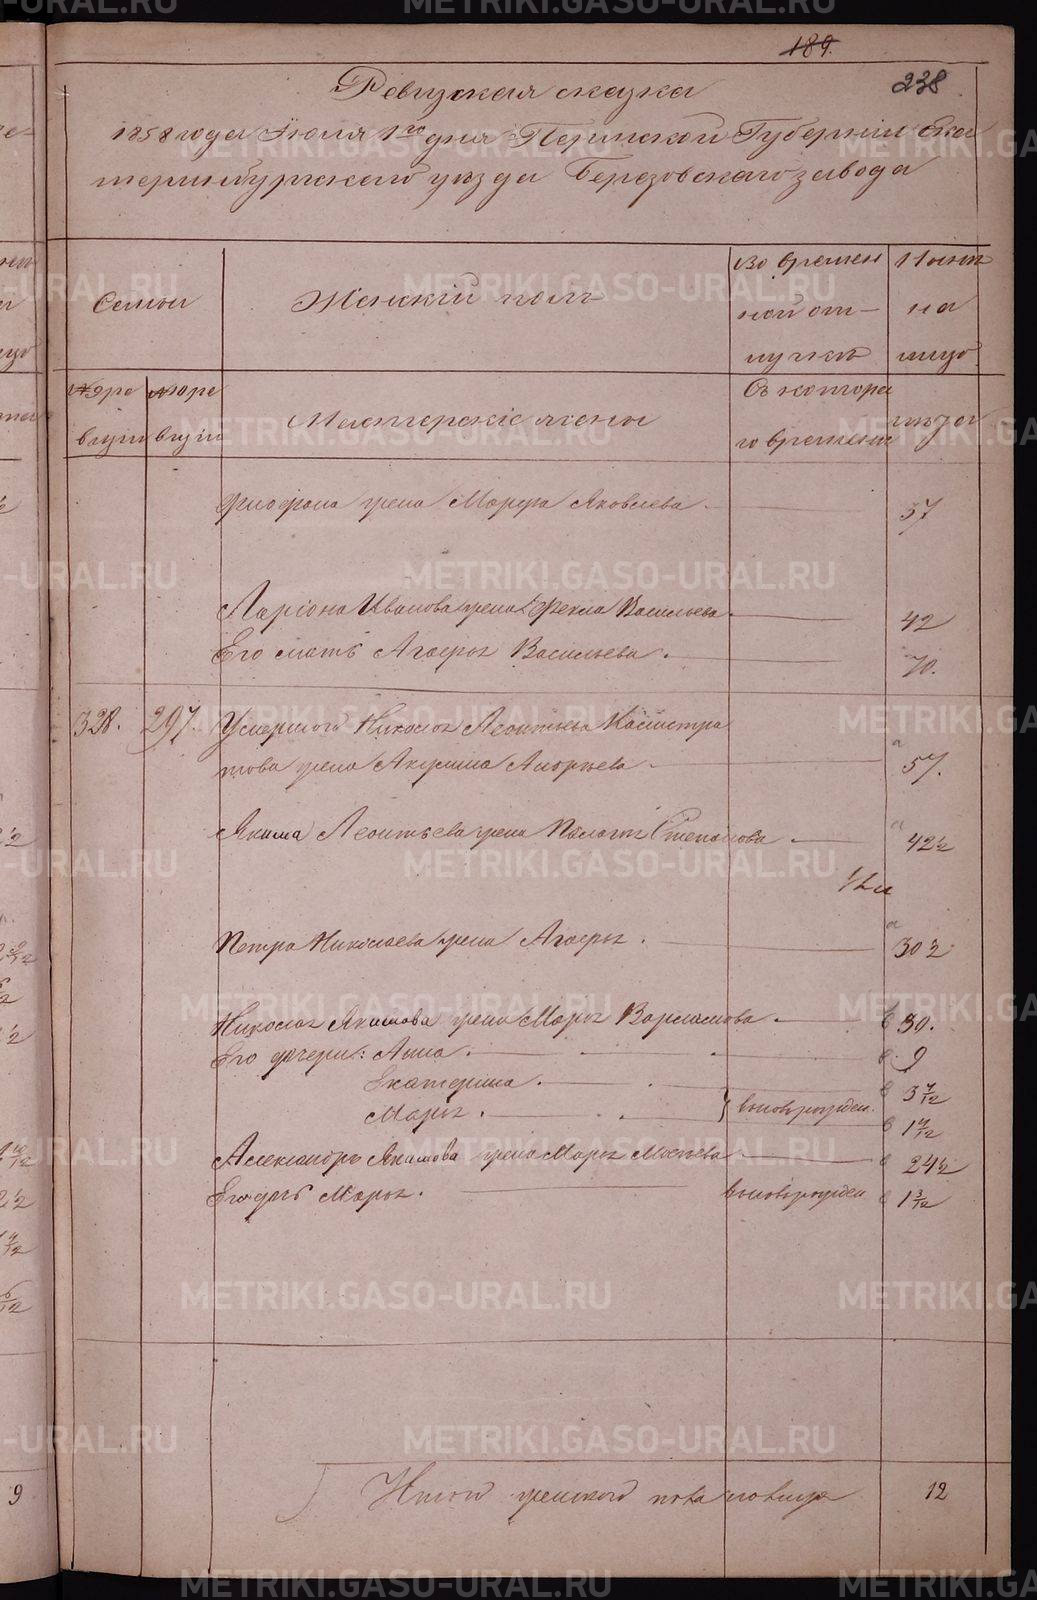 189.
238
Ревизская сказка
1858 года Июля 1го дня Пермской Губернии Ека
теринбургского уезда Березовского завода
Семьи
Женский пол
Во времен
ной от-
лучке
Ныне
на
лицо
№ 9 ре
визии
№ 10 ре
визии
Мастерские жены
Съ котора
го времени
лета
жена Марфа Яковлева
57
Лариона Иванова жена Фекла Васильева
42
Его мать Агафья Васильева.
70.
328.
297.
Умершого Николая Леонтьева Магистра
това жена Акулина Андреева
57.
Якима Леонтьева жена Пелагея Степанова
42½
Петра Николаева жена Агафья.
30½
Николая Якимова жена Марья Варламова
30.
Его дочери: Анна.
9
Екатерина.
3 7/12
Марья.
вновьрожден.
1 7/12
Александра Якимова жена Марья Мосеева
24½
Его дчь Марья.
вновьрожден
1 3/12
Итого женского пола на лицо
12
9
METRIKI.GASO-URAL.RU